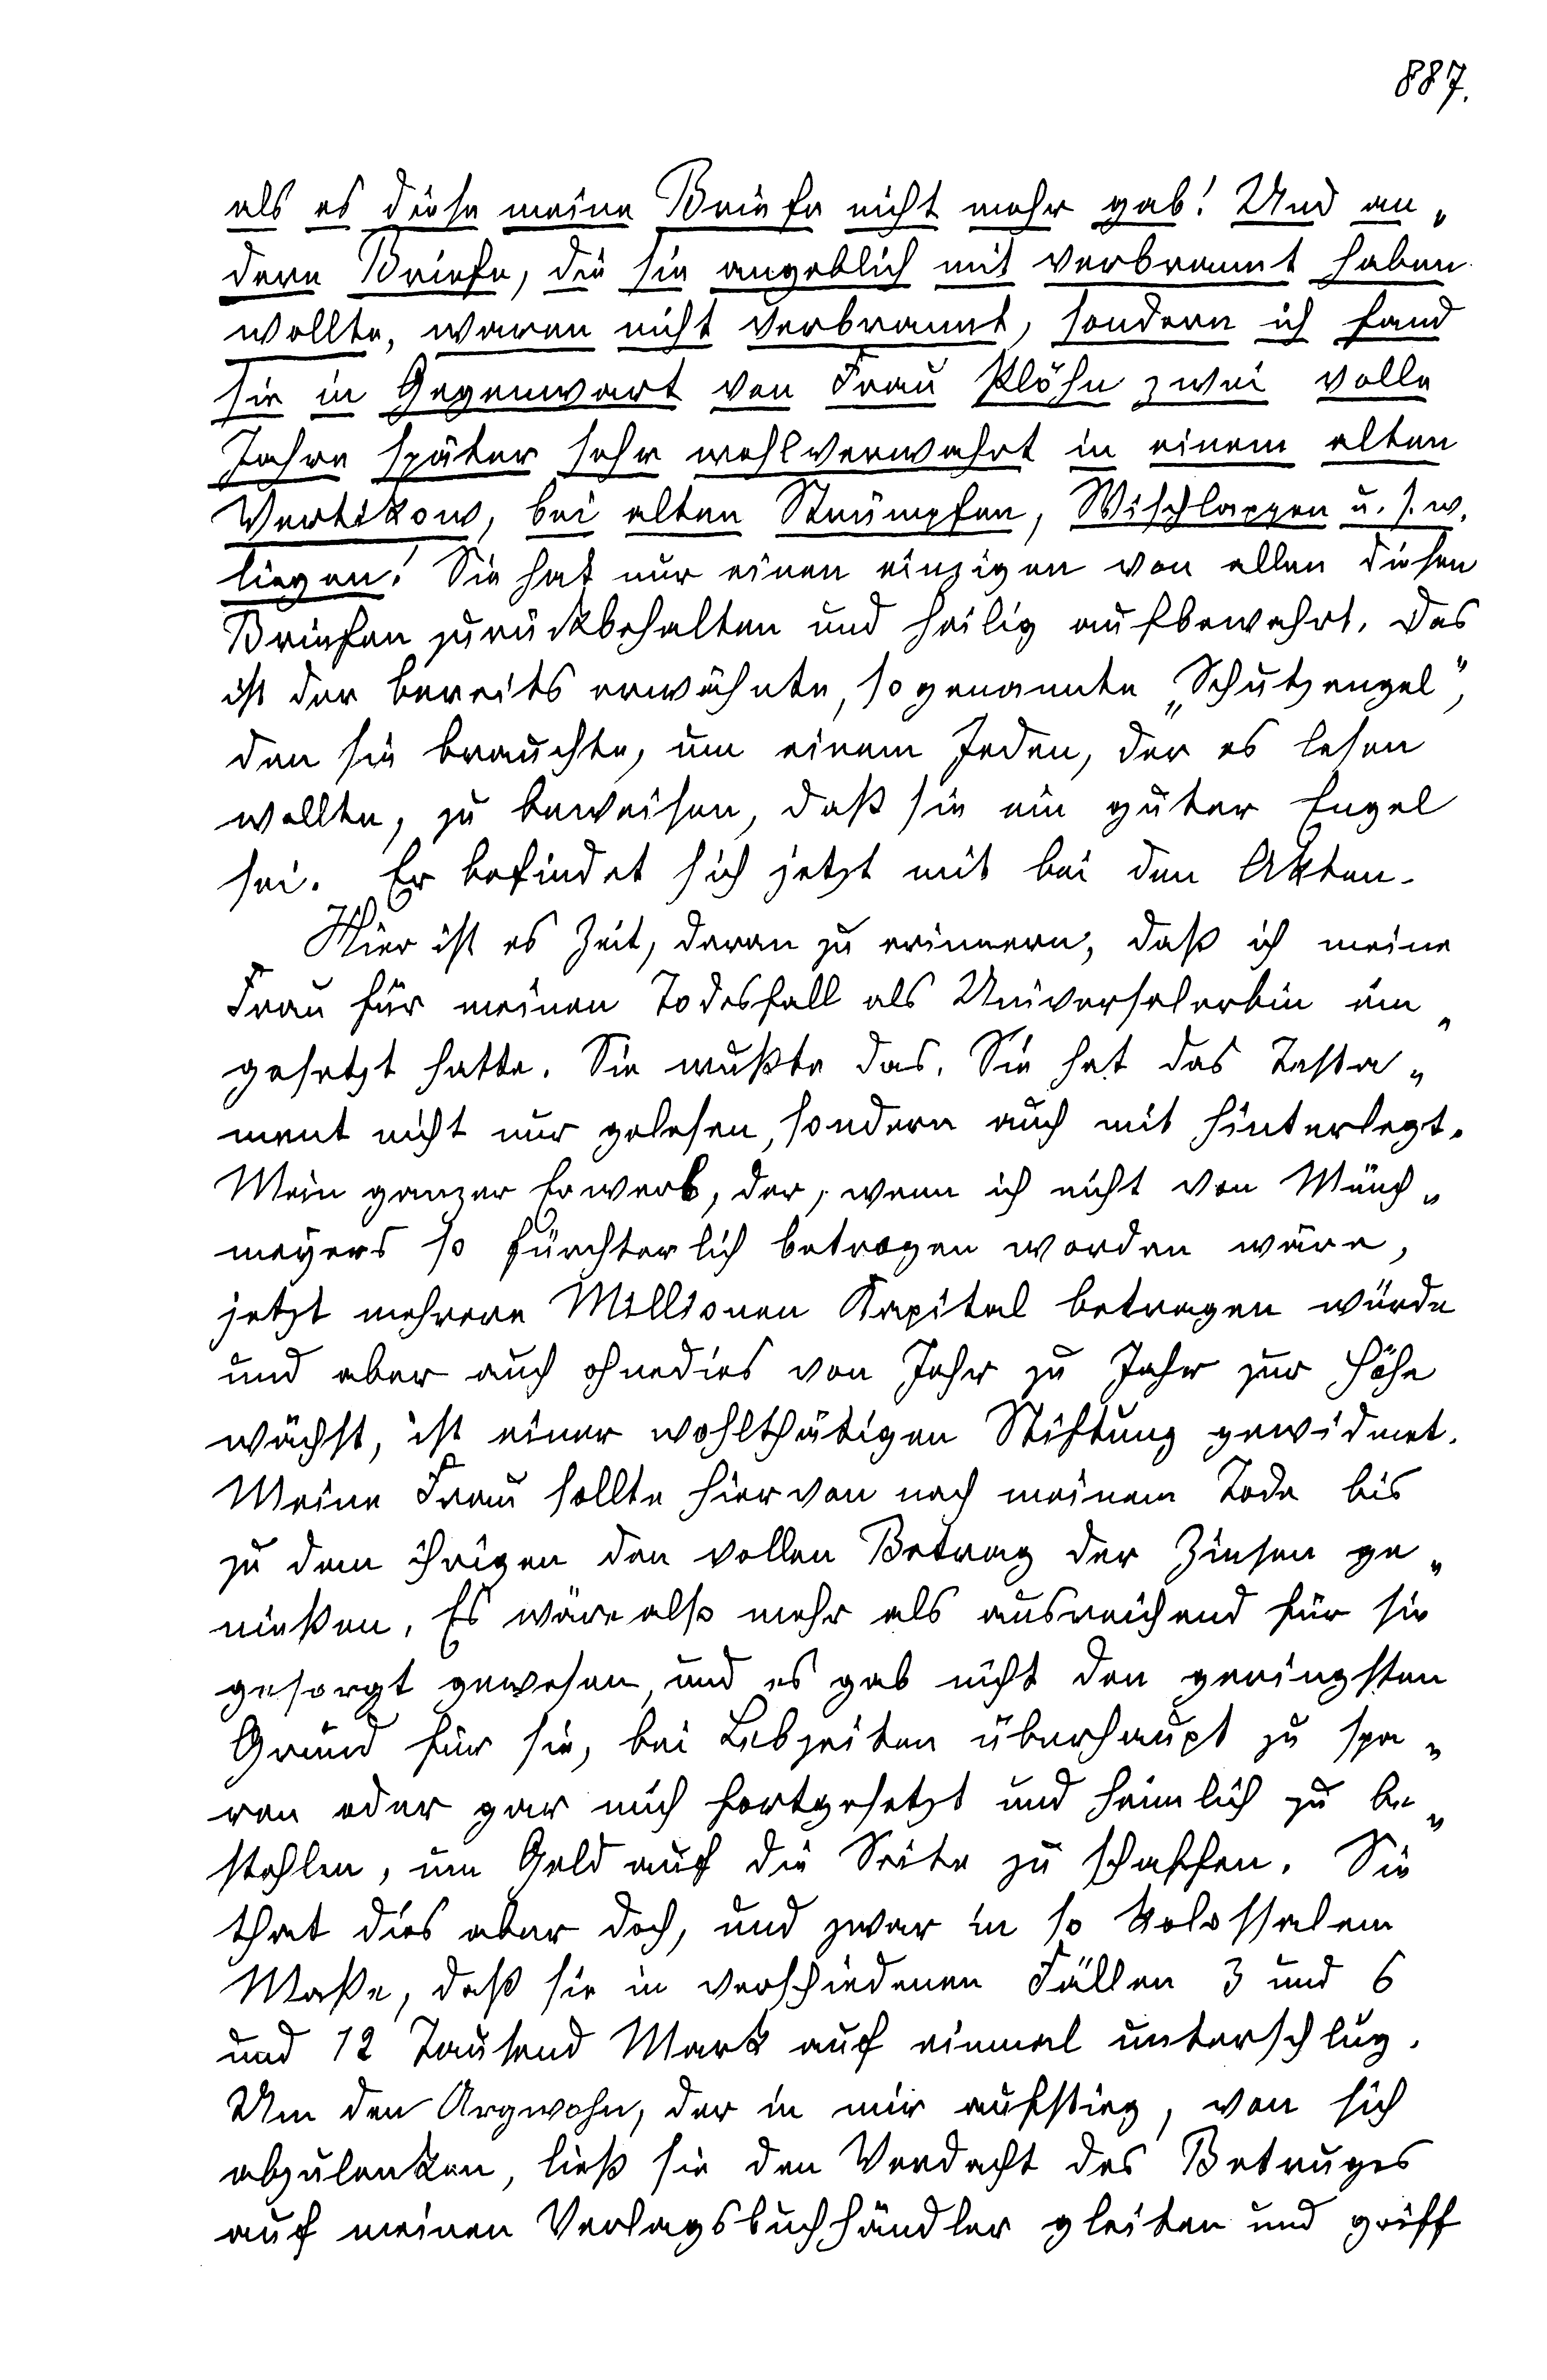 887.
als es diese meine Briefe nicht mehr gab! Und an„
dere Briefe, die sie angeblich mit verbrannt haben
wollte, waren nicht verbrannt, sondern ich fand
sie in Gegenwart von Frau Plöhn zwei volle
Jahre später sehr wohlverwahrt in einem alten
Vertikow, bei alten Strümpfen, Wischlappen u. s. w.
liegen! Sie hat nur einen einzigen von allen diesen
Briefen zurückbehalten und heilig aufbewahrt. Das
ist der bereits erwähnte, sogenannte „Schutzengel“,
den sie brauchte, um einem Jeden, der es lesen
wollte, zu beweisen, daß sie ein guter Engel
sei. Er befindet sich jetzt mit bei den Akten.
Hier ist es Zeit, daran zu erinnern, daß ich meine
Frau für meinen Todesfall als Universalerbin ein„
gesetzt hatte. Sie wußte das. Sie hat das Testa„
ment nicht nur gelesen, sondern auch mit hinterlegt.
Mein ganzer Erwerb, der, wenn ich nicht von Münch„
meyers so fürchterlich betrogen worden wäre,
jetzt mehrere Millionen Kapital betragen würde
und aber auch ohnedies von Jahr zu Jahr zur Höhe
wächst, ist einer wohlthätigen Stiftung gewidmet.
Meine Frau sollte hiervon nach meinem Tode bis
zu dem ihrigen den vollen Betrag der Zinsen ge„
nießen. Es wäre also mehr als ausreichend für sie
gesorgt gewesen, und es gab nicht den geringsten
Grund für sie, bei Lebzeiten überhaupt zu spa„
ren oder gar mich fortgesetzt und heimlich zu be„
stehlen, um Geld auf die Seite zu schaffen. Sie
that dies aber doch, und zwar in so kolossalem
Maße, daß sie in verschiedenen Fällen 3 und 6
und 12 Tausend Mark auf einmal unterschlug.
Um den Argwohn, der in mir aufstieg, von sich
abzulenken, ließ sie den Verdacht des Betruges
auf meinen Verlagsbuchhändler gleiten und griff